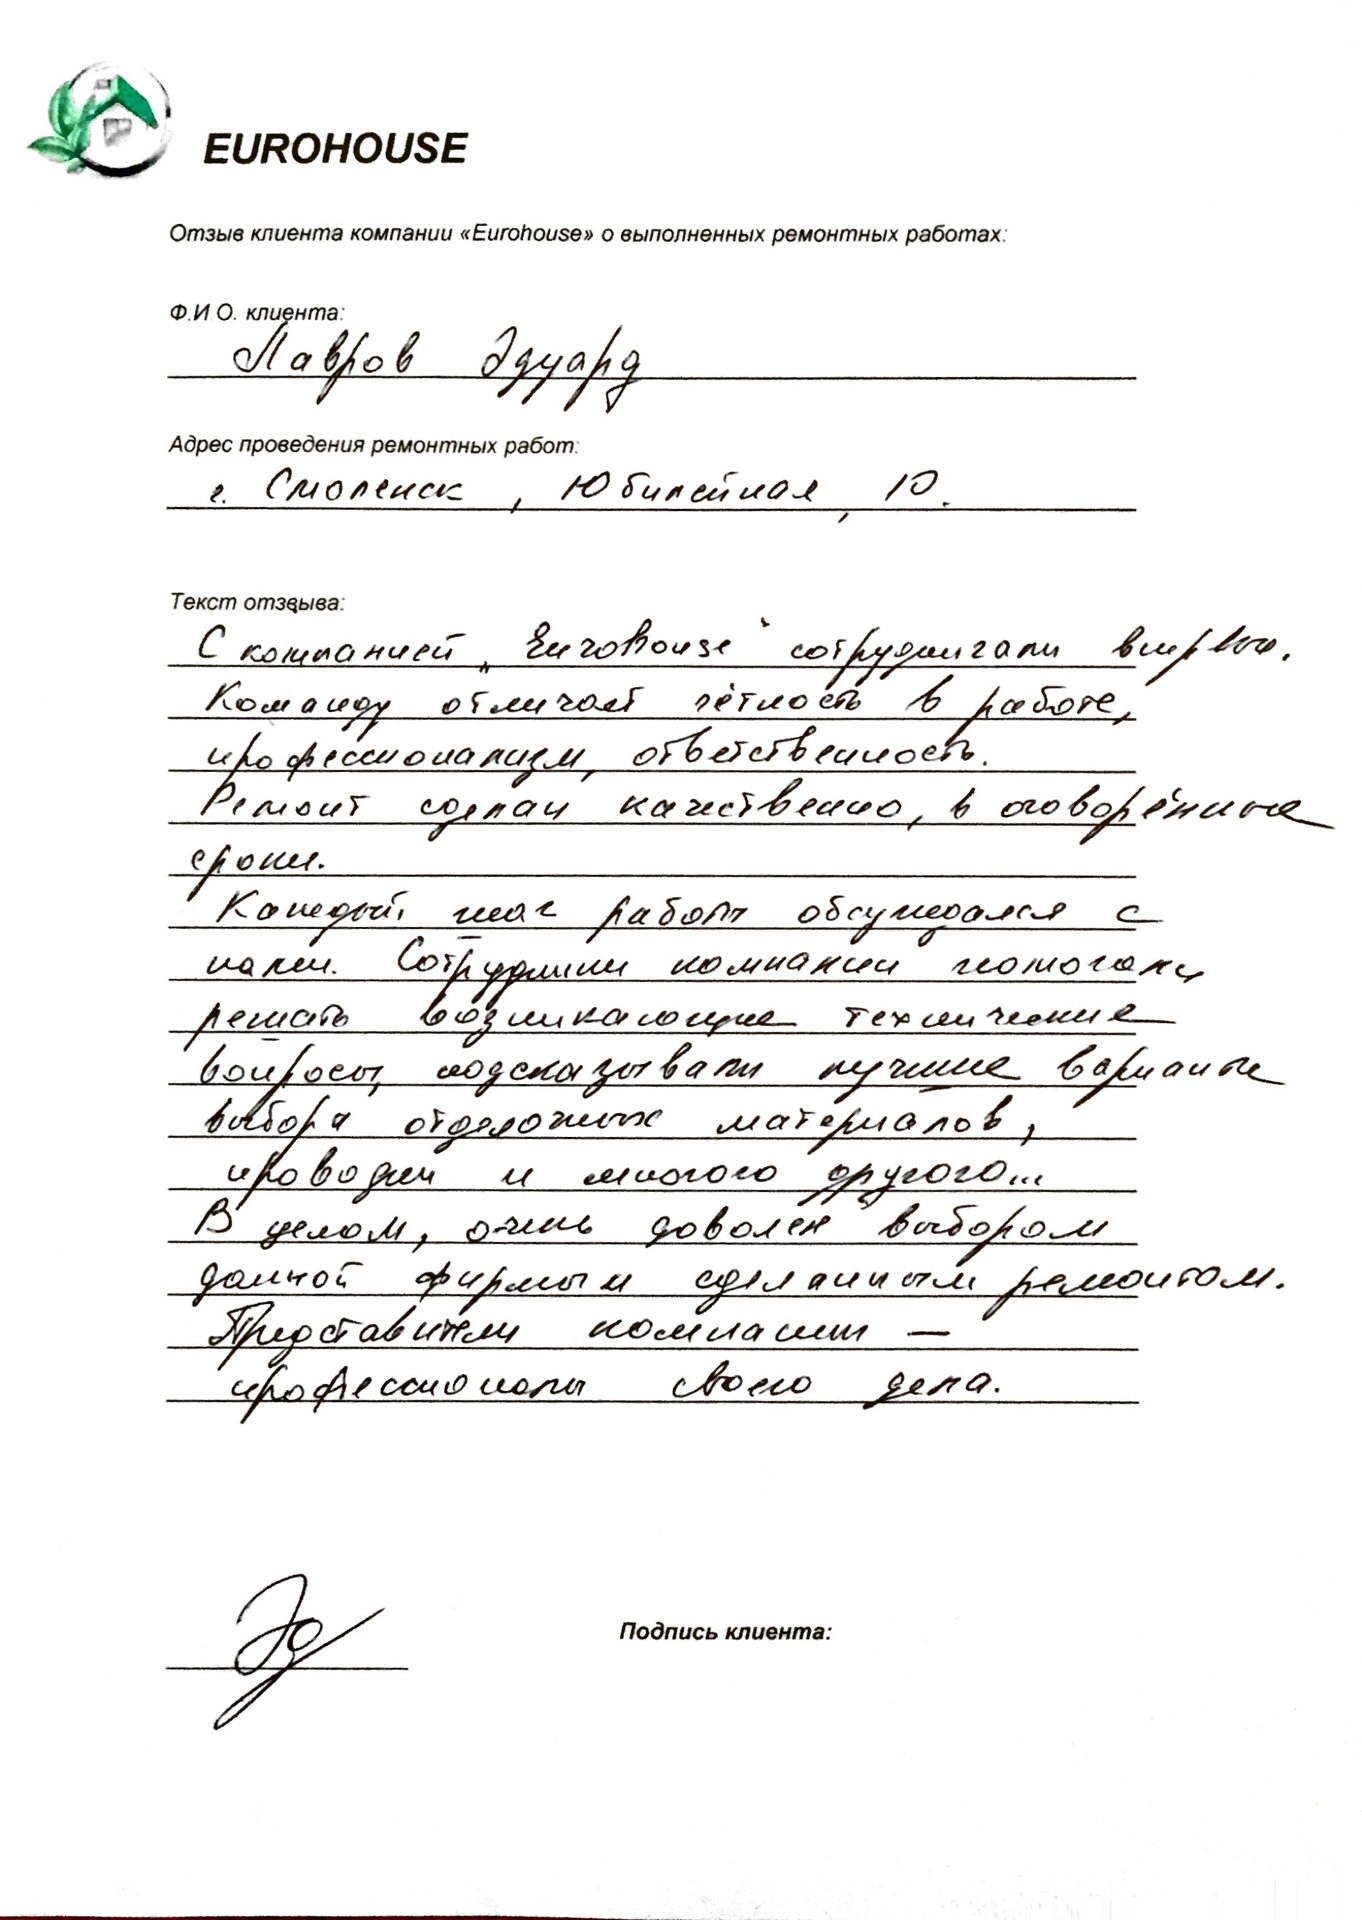 EUROHOUSE
Отзыв клиента компании «Eurohouse» о выполненных ремонтных работах:
Ф.И.О. клиента:
Лавров Эдуард
Адрес проведения ремонтных работ:
г. Смоленск, Юбилейная, 10.
Текст отзыва:
С компанией „Eurohouse“ сотрудничали впервые.
Команду отличает чёткость в работе,
профессионализм, ответственность.
Ремонт сделан качественно, в оговорённые
сроки.
Каждый шаг работы обсуждался с
нами. Сотрудники компании помогали
решать возникающие технические
вопросы, подсказывали лучшие варианты
выбора отделочных материалов,
проводки и многого другого...
В целом, очень доволен выбором
данной фирмы и сделанным ремонтом.
Представители компании —
профессионалы своего дела.
Подпись клиента: